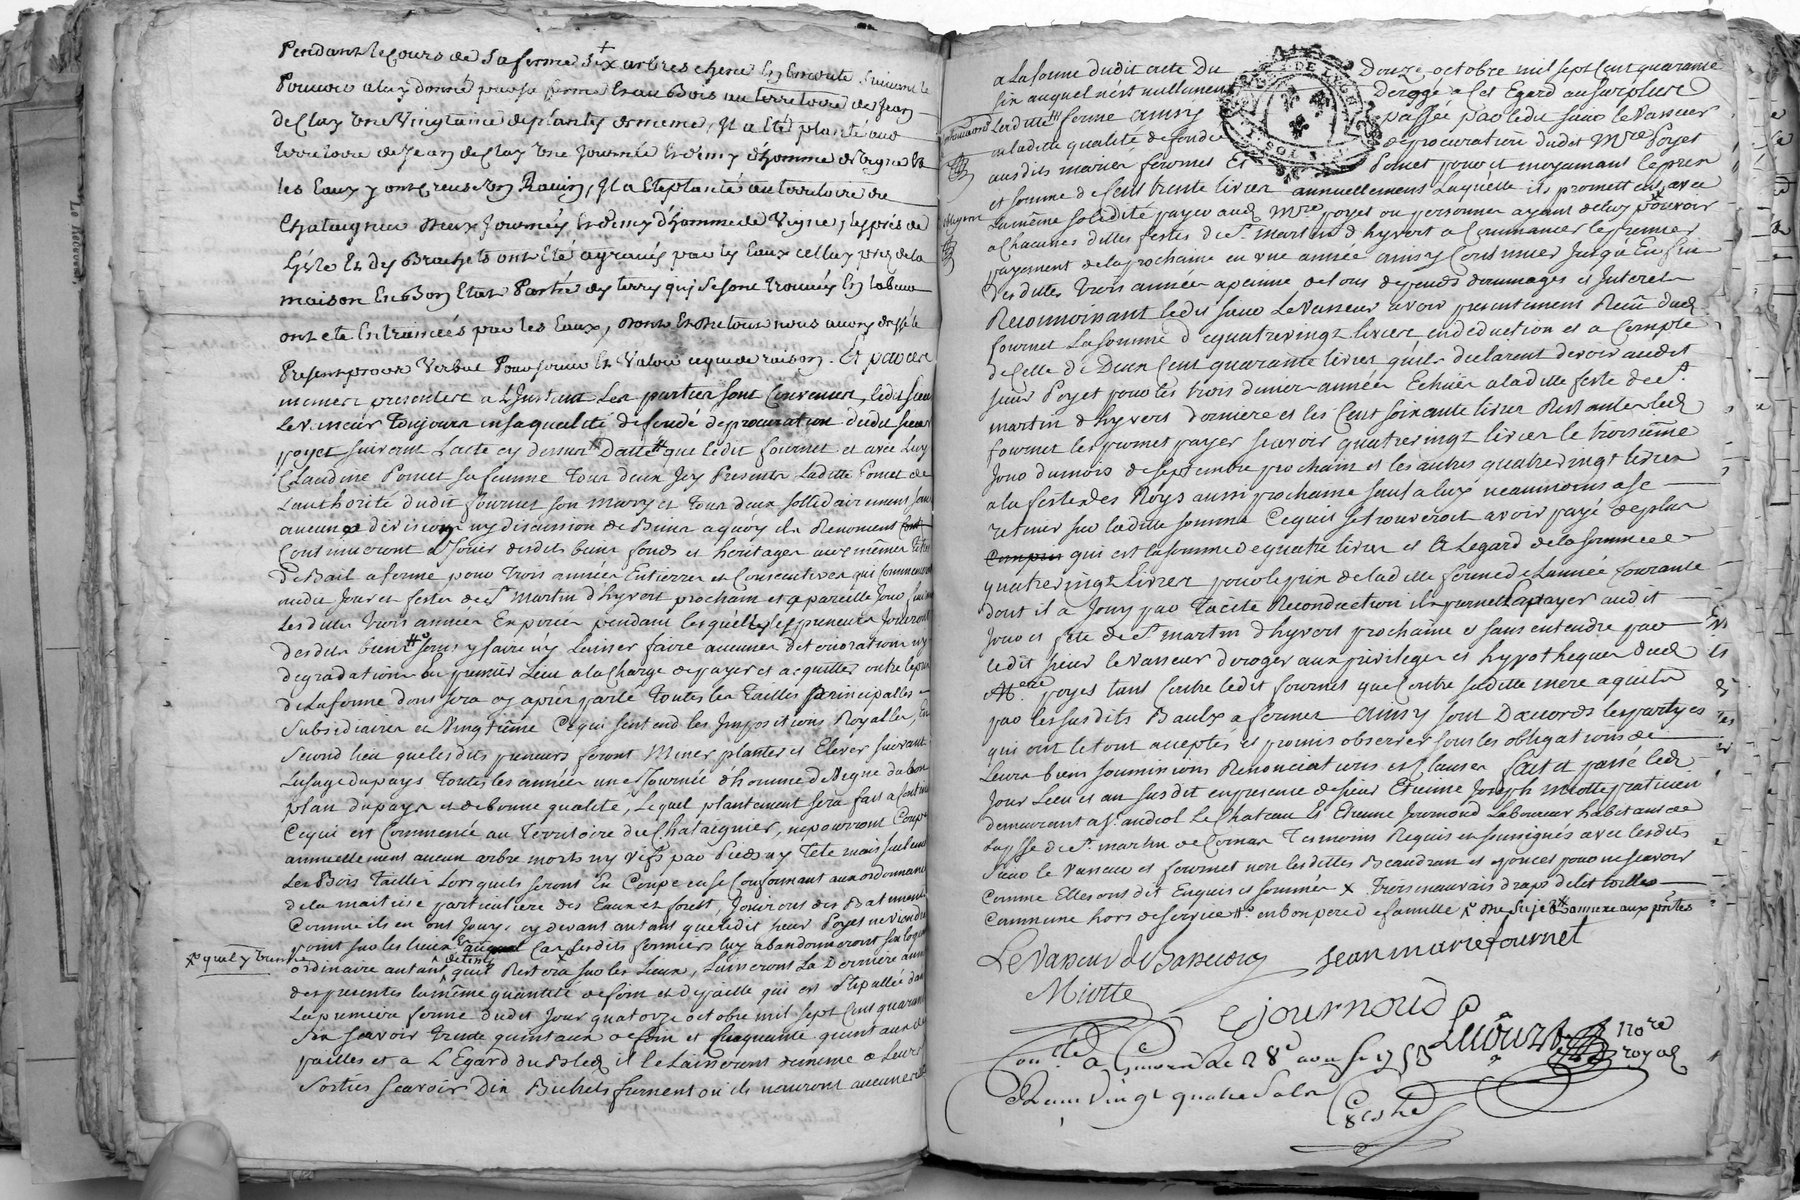 Pendant le Cours de Sa ferme Six arbres chene En bruute Suivant le
Pouvoir a luy donné pour sa ferme Et au Bois au territoire de Jean
de Clay Une Vingtaine de plants de meme, Il a Eté planté aud
territoire de Jean de Clay Une Journée Et demy d'homme de Vigne Et
les Eaux y ont Creusé Un Ravin, Il a Eté planté au territoire de
Chataignier Deux Journées Et demy d'homme de Vigne; les prés de
Et des Brachets ont Eté agravés par les Eaux celluy pres de la
maison En Bon Etat Partie des terres qui Se sont trouvées En labour
ont eté Entrainées par les Eaux, dont Et du tout nous avons dressé le
Present procés Verbal Pour Servir Et Valoir ce que de raison. Et par ces
mêmes presentes a L'Instant Les parties sont Convenues, ledit sieur
Levasseur Toujours en sa qualité de fondé de procuration dudit sieur
poyet suivant L'acte cy dessus Datté que ledit fournet et avec Luy
Claudine Pomet sa femme Tous deux Icy Presents Laditte Pomet de
L'authorité dudit fournet son mary et Tous deux sollidairement sans
aucune division ny discussion de Biens a quoy ils Renoncent
Continueront a Jouir desdits biens fonds et héritages aux mêmes titres
de Bail a ferme pour Trois années Entierres et Consecutives qui Commenceront
audit Jour et feste de St Martin d'hyvert prochain et a pareille Jour
Lesdittes Trois années Expirées pendant lesquelles les preneurs Jouiront
desdits biens sans y faire ny Laisser faire aucunes detoriorations ny
degradations En premier Lieu a la Charge de payer et acquitter outre le prix
de La ferme dont sera cy après parlé Toutes les Tailles principalles
Subsidiaires et Vingtiême Ce qui s'entend les Impositions Royalles, En
Second lieu que lesdits preneurs feront Miner planter et Elever suivant
L'usage du pays Toutes les années une Journée d'homme de Vigne du bon
plan du pays et de bonne qualité, Lequel plantement sera fait a Continuer
Ce qui est Commencé au Territoire du Chataignier, ne pourront Couper
annuellement aucun arbre morts ny vifs par Pied ny Tete mais seulement
Les Bois Taillis Lorsquils seront En Coupe en se Conformant aux ordonnances
de la maitrise particuliere des Eaux et forest, Jouiront des Batiments
Comme ils en ont Jouy cy devant autant que ledit sieur Poyet ne viendra
point sur les lieux Car lesdits fermiers luy abandonneront son logement
x quel y Tiendra
ordinaire autant de tems qu'il Restera sur les Lieux, Laisseront La Derniere année
des presentes la même quantité de foin et de paille qui est Stipullée dans
La premiere ferme dudit Jour quatorze octobre mil sept Cent quarante
Six Scavoir Trente quintaux de foin et Cinquante quintaux de
pailles et a L'Egard du Bled il le Laisseront de même a Leurs
Sorties Scavoir Dix Bichets froment ou ils n'auront aucune
a La forme dudit acte Du Douze octobre mil sept Cent quarante
six auquel n'est nullement derogé a Cet Egard au surplus
Laditte ferme ainsy passée par ledit sieur le Vasseur
en laditte qualité de fondé de procuration dudit Mre Poyet
ausdits mariés fournet Et Pomet pour et moyennant le prix
et somme de Cent trente livres annuellement Laquelle ils promettent avec
La même solidité payer aud. Mre poyet ou personnes ayant de luy pouvoir
a Chacunes dittes festes de St martin d'hyvert a Commancer le premier
payement de la prochaine en une année ainsy Continuer Jusqu'a En fin
desdittes Trois années a peinne de tous depends dommages et Interets
Reconnoissant ledit sieur Le Vasseur avoir presentement Receu dud.
fournet La somme de quatrevingt livres en deduction et a Compte
de Celle de Deux Cent quarante livres qu'ils declarent devoir audit
sieur Poyet pour les trois dernieres années Echües a laditte feste de St
martin d'hyvert derniere et les Cent soixante livres Restantes led.
fournet les promet payer scavoir quatrevingt livres le troisième
Jour du mois de septembre prochain et les autres quatrevingt livres
a la feste des Roys aussi prochaine sauf a luy neanmoins a se
retenir sur laditte somme Ce quil se trouveroit avoir payé de plus
qui est la somme de quatre livres et A L'egard de la somme de
quatrevingt livres pour le prix de laditte ferme de L'année Courante
dont il a Jouy par Tacite Reconduction ils promettent payer audit
Jour et fête de St martin d'hyvert prochaine et sans entendre par
ledit sieur le vasseur deroger aux privileges et hypotheques dud.
Mre poyet tant Contre ledit fournet que Contre saditte mere acquis
par les susdits Baulx a fermes Ainsy sont D'acords les partyes
qui ont le tout accepté et promis observer sous les obligations de
Leurs biens soumissions Renonciations et Clauses fait et passé led.
Jour Lieu et an susdit en presence de sieur Etienne Joseph Miotte praticien
demeurant a St andeol Le Chateau Et Etienne Journoud Laboureur habitant de
de St martin de Cornas Temoins Requis et soussignés avec lesdits
sieur le Vasseur et fournet non lesdittes Beaudran et Pomet pour ne scavoir
Comme Elles ont dit Enquis et sommées x Trois mauvais draps de lit toilles
Commune hors de service en bon pere de famille
Le Vasseur de Bassecourt Jean marie fournet
Miotte
E journoud
nore
royal
Conllé a Givors le 28e aoust 1753
Reçu Vingt quatre Sols